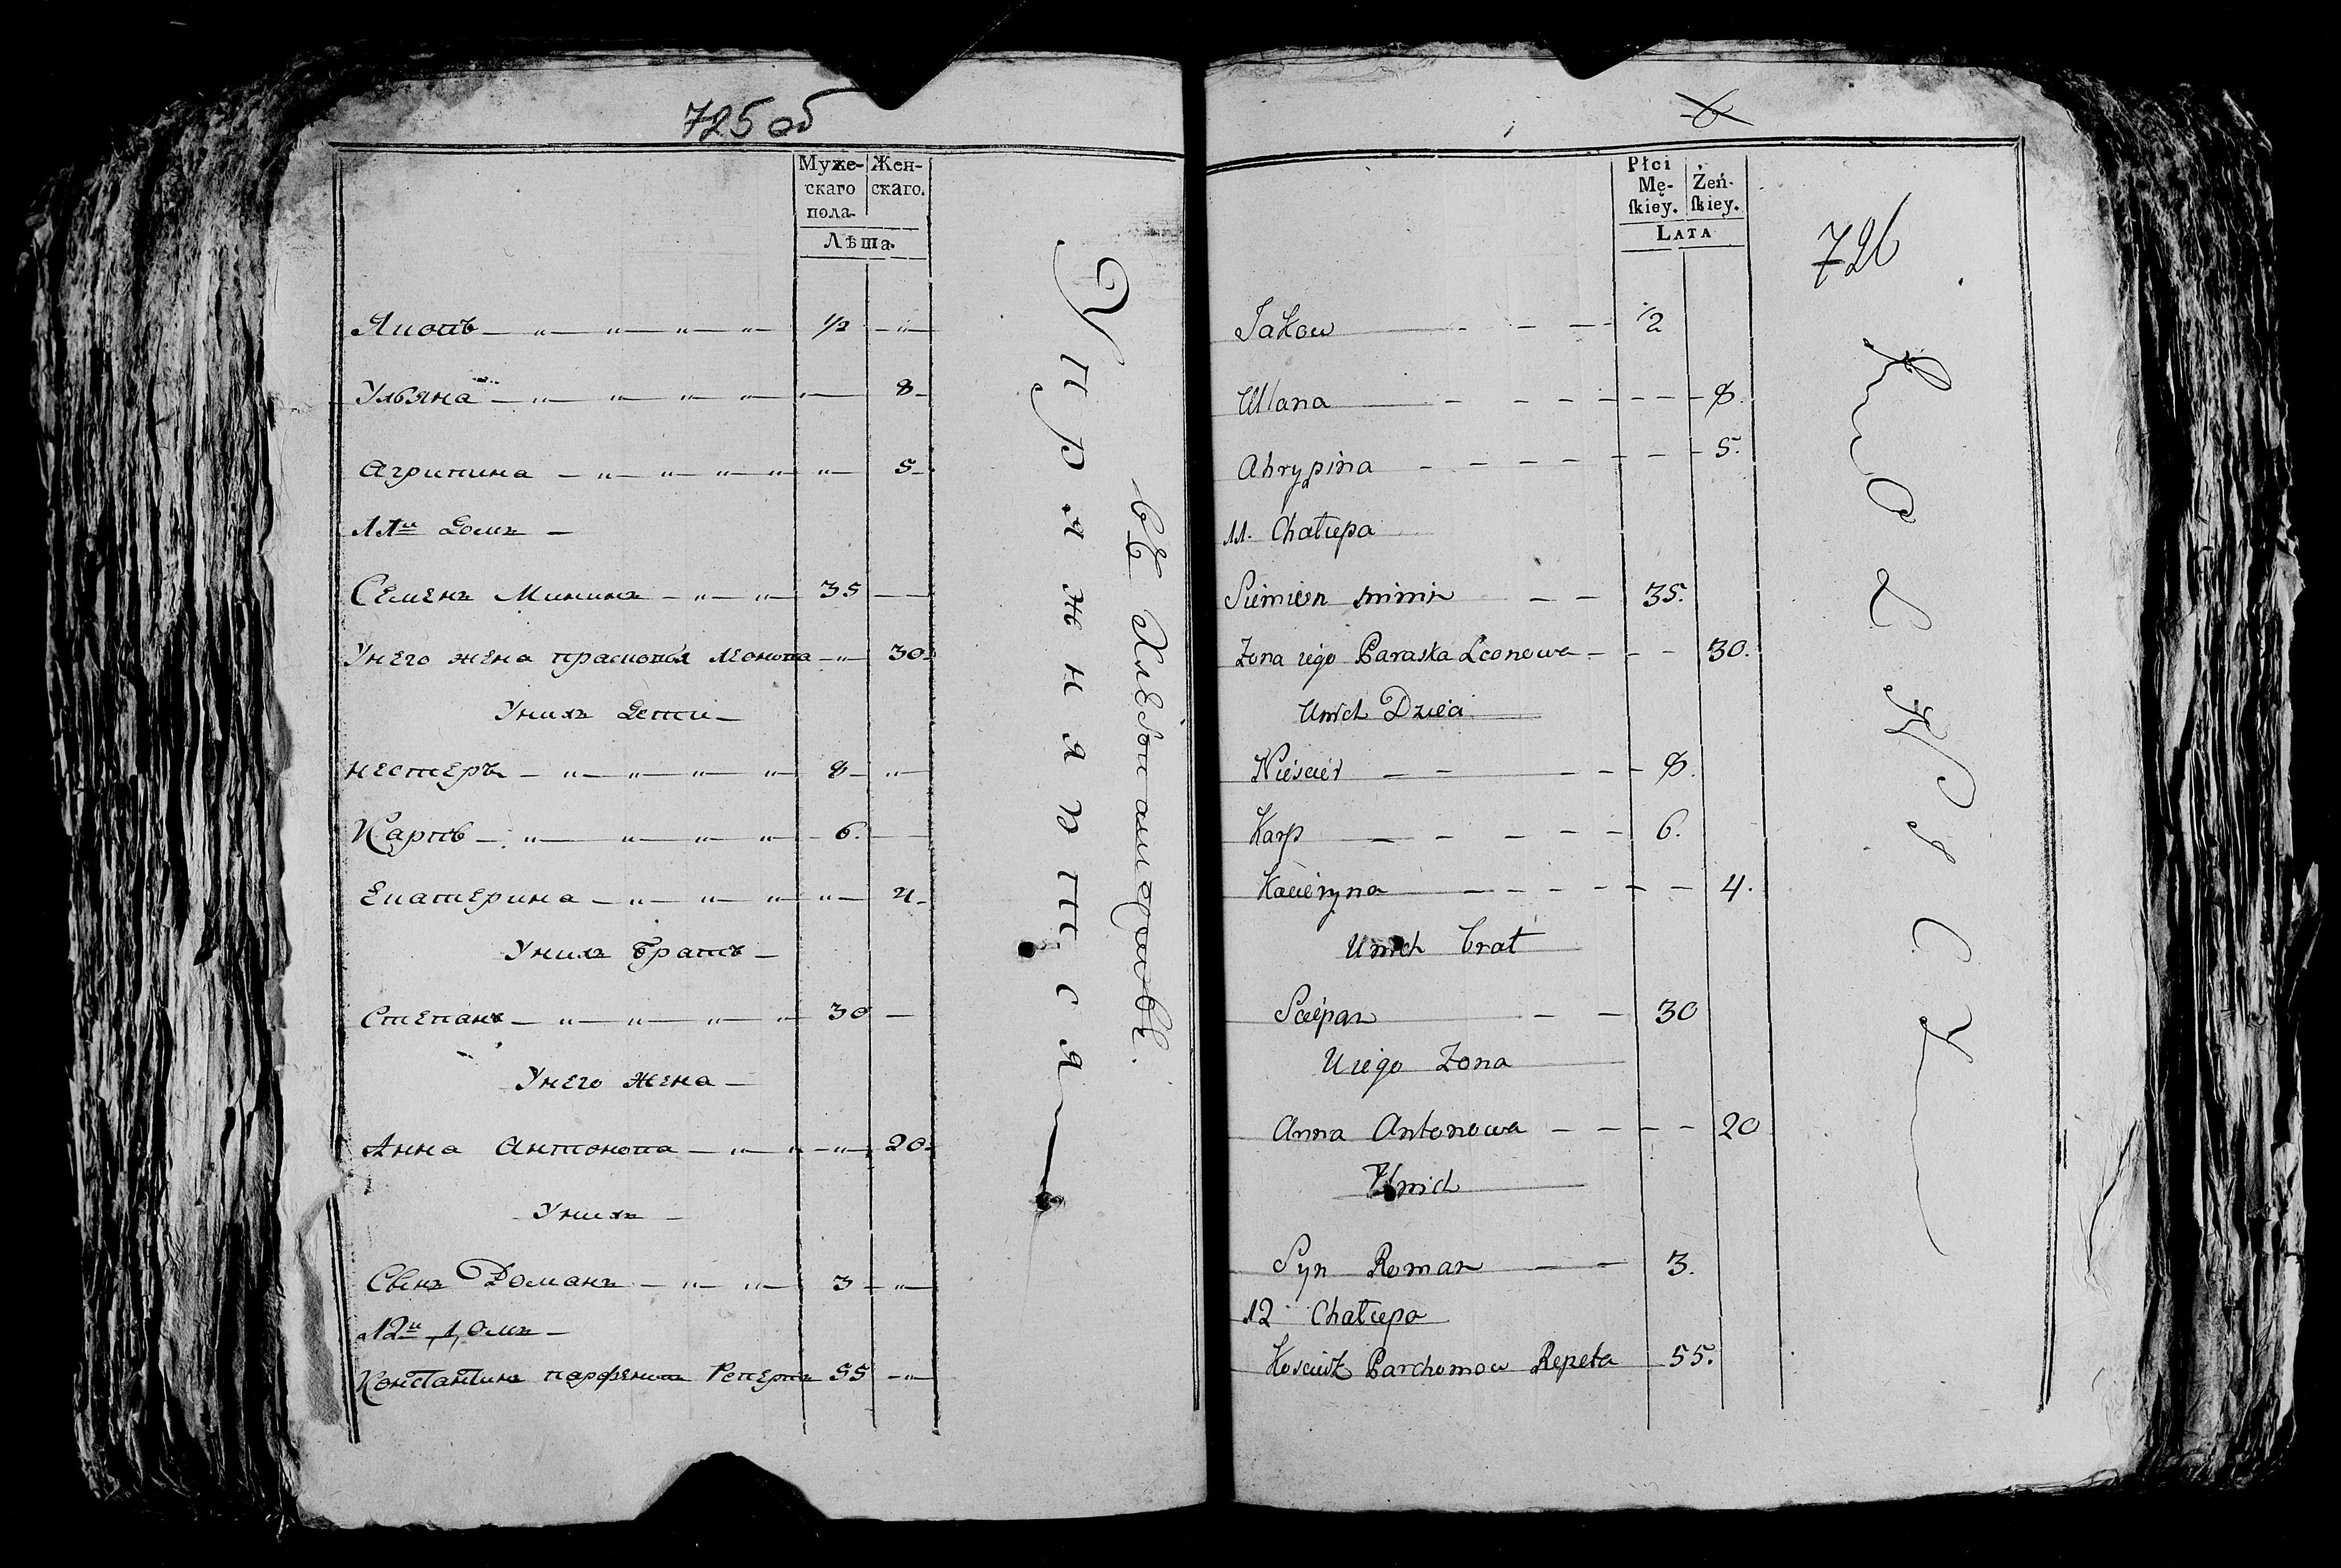 725 об
Муже-
скаго
пола.
Жен-
скаго.
Лѣта.
Яковъ — " — " — " — " — 1/2 — " —
Ульяна — " — " — " — " — " — 8 —
Агрипина — " — " — " — " — " — 5 —
11й Домъ —
Семенъ Мининъ — " — " — 35 — —
Унего жена прасковья Леонова — " — 30 —
Унихъ Дети —
нестеръ — " — " — " — " — 8 — " —
Карпъ — " — " — " — " — 6. —
Екатерина — " — " — " — " — 4 —
Унихъ братъ —
Степанъ — " — " — " — " — 30 —
Унего Жена —
Анна Антонова — " — " — " — 20 —
Унихъ —
Сынъ Романъ — " — " — 3 — " —
12й Домъ —
Константинъ парфеновъ Репетъ 55 — " —
Упражняются
въ Хлебопашествѣ.
Płci
Mę-
ſkiey.
Żeń-
ſkiey.
LATA
726
Jakow — — — 1/2
Ulana — — — — — — 8.
Ahrypina — — — — — — 5.
11. Chałupa
Siemion minin — — 35.
Zona iego Paraska Leonowa — — — 30.
Unich Dzieci
Nieścier — — — — 8.
Karp — — — — — 6.
Kacieryna — — — — — — 4.
Unich brat
Sciepan — — 30
Uiego Zona
Anna Antonowa — — — — 20
Unich
Syn Roman — — 3.
12 Chałupa
Parchomow Repeta 55.